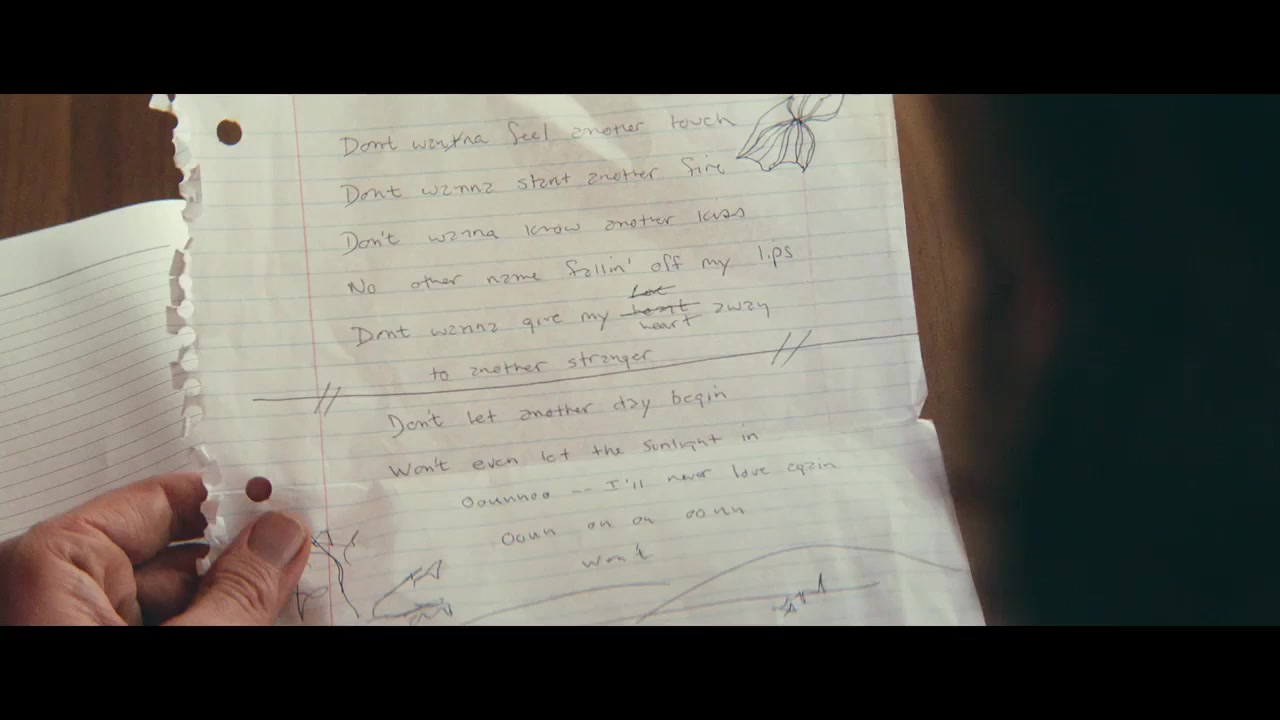 Dont wanna feel another touch
Dont wanna start another fire
Don't wanna know another kiss
No other name fallin' off my lips
Dont wanna give my heart heart away
to another stranger
Don't let another day begin
Won't even let the sunlight in
I'll never love again
won't